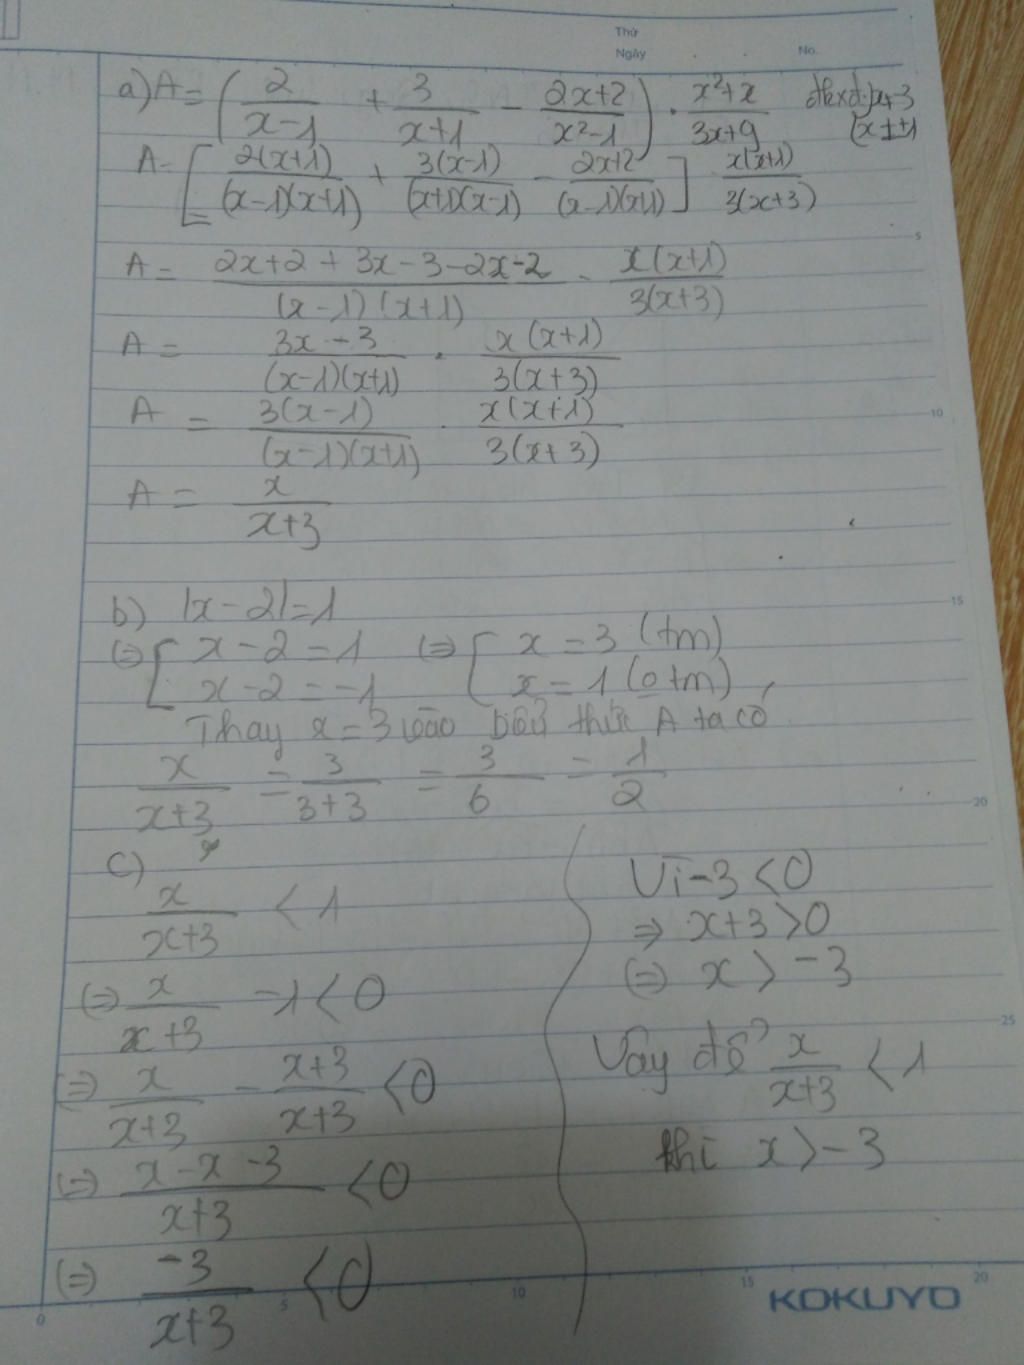 Thứ
Ngày No.
a) A = ( 2/(x-1) + 3/(x+1) - (2x+2)/(x²-1) ) . (x²+x)/(3x+9) đkxđ: x≠-3
(x≠±1
A = [ 2(x+1)/((x-1)(x+1)) + 3(x-1)/((x+1)(x-1)) - (2x+2)/((x-1)(x+1)) ] x(x+1)/(3(x+3))
A = (2x+2+3x-3-2x-2)/((x-1)(x+1)) . x(x+1)/(3(x+3))
A = (3x-3)/((x-1)(x+1)) . x(x+1)/(3(x+3))
A = 3(x-1)/((x-1)(x+1)) . x(x+1)/(3(x+3))
A = x/(x+3)
b) |x-2|=1
(=) [ x-2=1 (=) [ x=3 (tm)
x-2=-1 x=1 (o tm)
Thay x=3 vào biểu thức A ta có
x/(x+3) = 3/(3+3) = 3/6 = 1/2
c)
x/(x+3) < 1
(=) x/(x+3) -1 < 0
(=) x/(x+3) - (x+3)/(x+3) < 0
(=) (x-x-3)/(x+3) < 0
(=) -3/(x+3) < 0
Vì -3 < 0
=> x+3 > 0
(=) x > -3
Vậy để x/(x+3) < 1
khi x > -3
KOKUYO
5
10
15
20
25
0 5 10 15 20